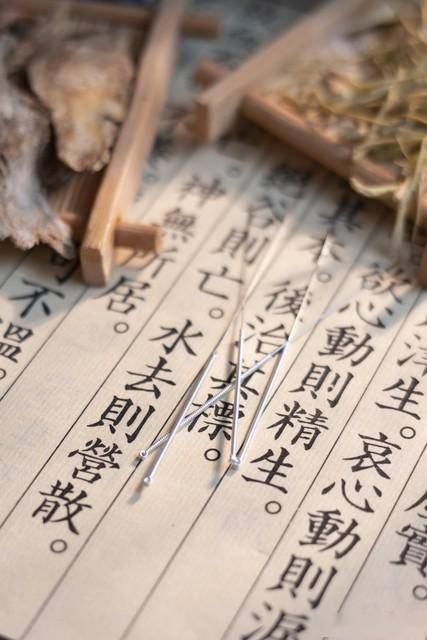 實。
生。哀心動則淚
欲心動則精生。
其本。後治其標。
絕谷則亡。水去則營散。
神無所居。
不